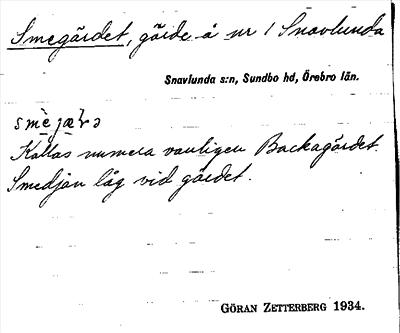 Smegärdet, gärde å nr 1 Snavlunda
Snavlunda s:n, Sundbo hd, Örebro län.
Kallas numera vanligen Backagärdet.
Smedjan låg vid gärdet.
GÖRAN ZETTERBERG 1934.